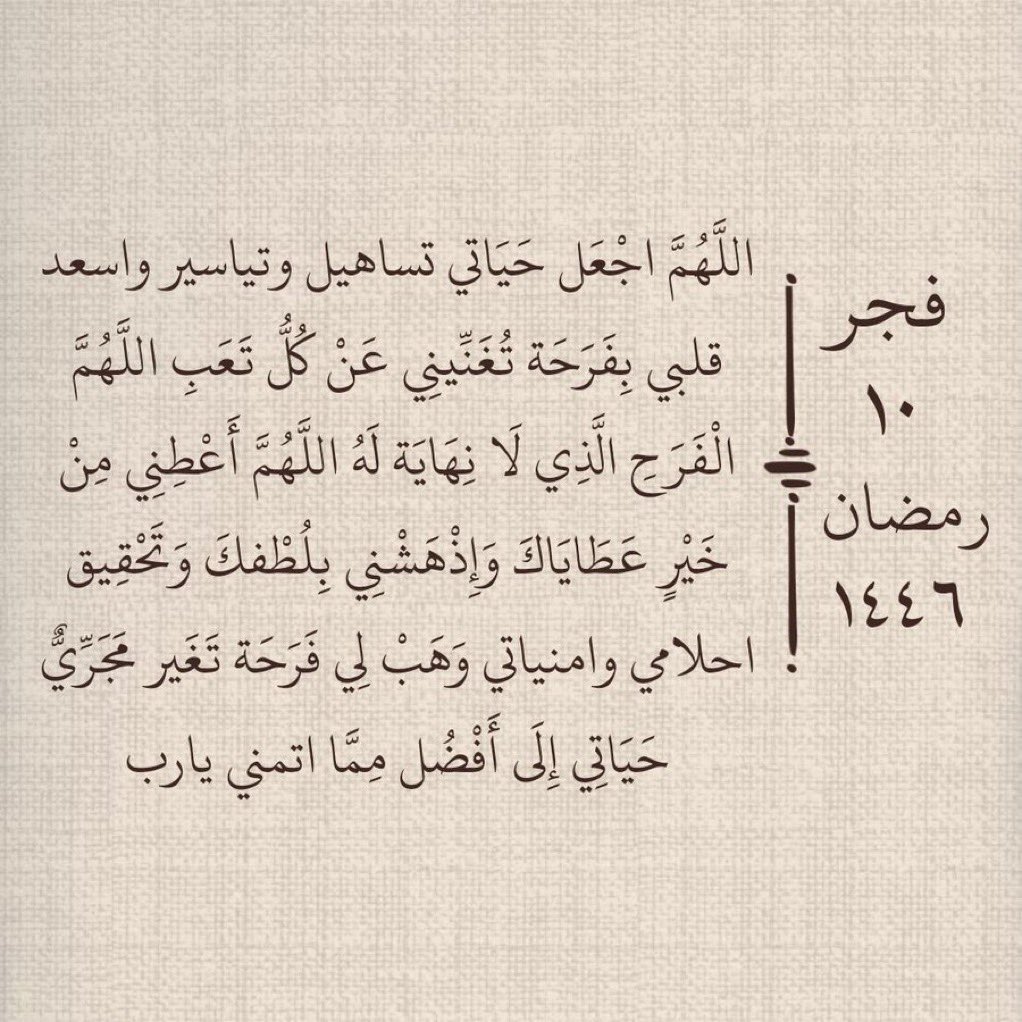 فجر
١٠
رمضان
١٤٤٦
اللَّهُمَّ اجْعَل حَيَاتي تساهيل وتياسير واسعد
قلبي بِفَرَحَة تُغَنِّينِي عَنْ كُلُّ تَعَبِ اللَّهُمَّ
الْفَرَحِ الَّذِي لَا نِهَايَة لَهُ اللَّهُمَّ أَعْطِنِي مِنْ
خَيْرٍ عَطَايَاكَ وَإِذْهَشْنِي بِلُطْفكَ وَتَحْقِيق
احلامي وامنياتي وَهَبْ لِي فَرَحَة تَغَير مَجَرِّيٌّ
حَيَاتِي إِلَى أَفْضُل مِمَّا اتمني يارب